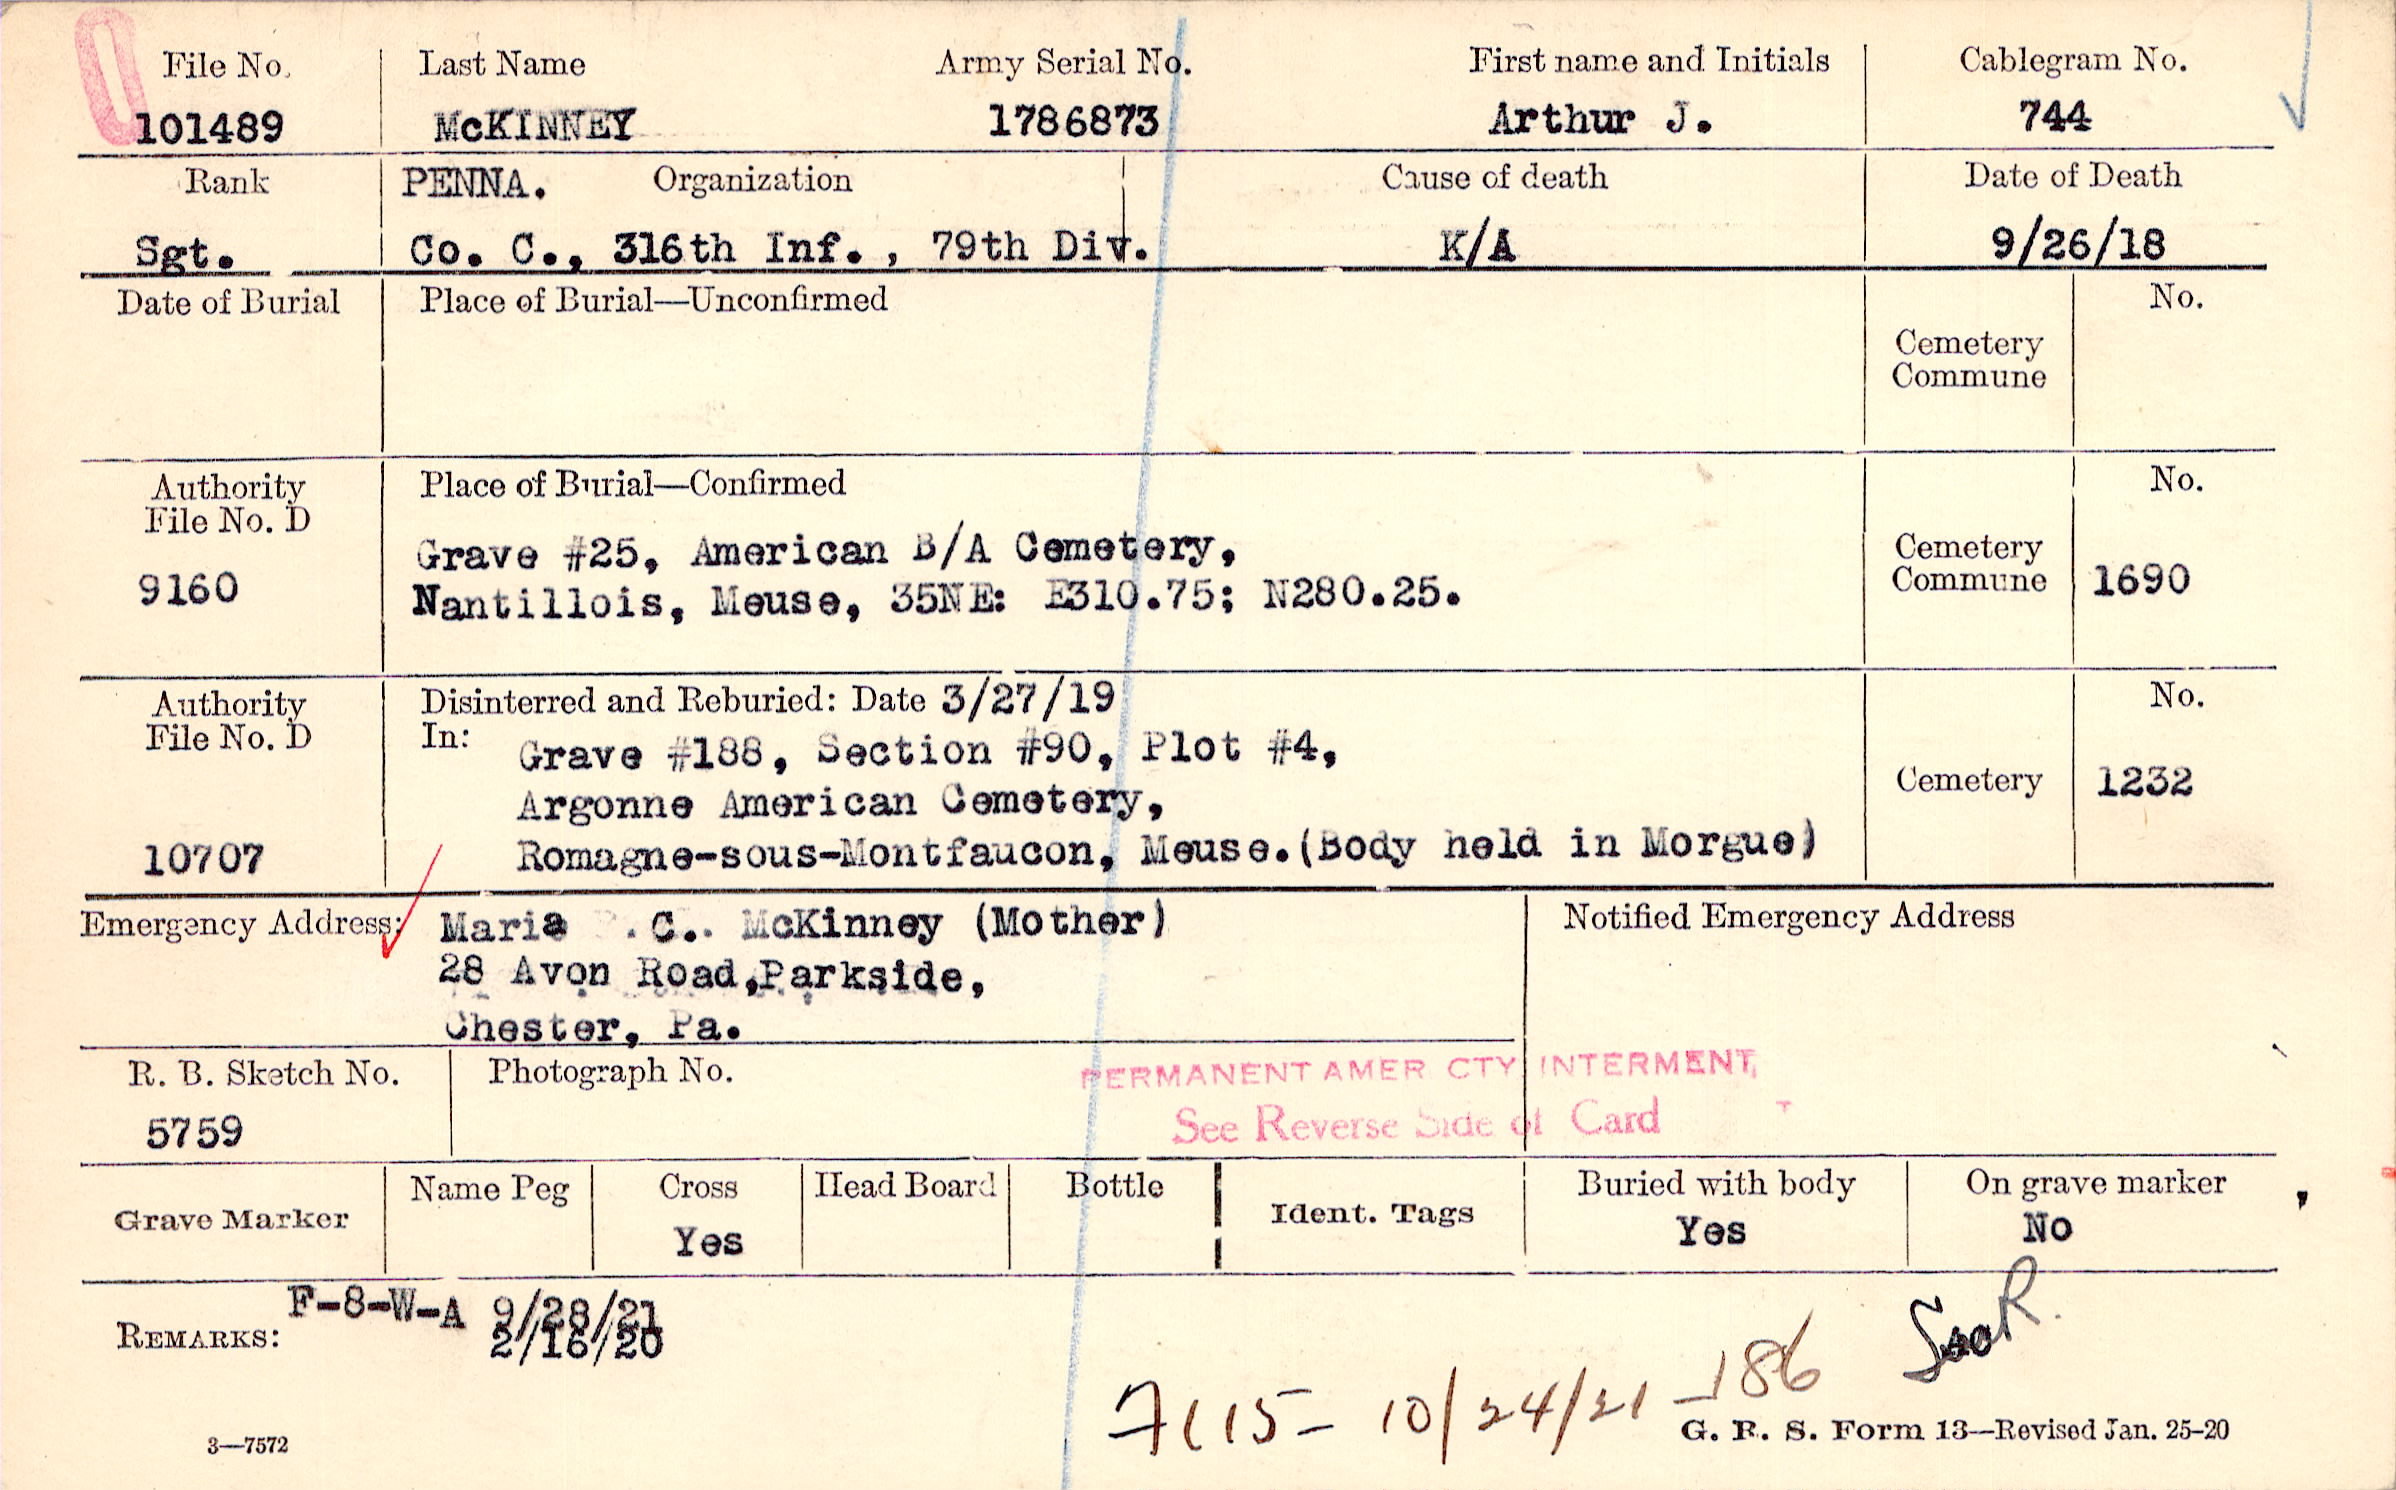 File No. Last Name Army Serial No. First name and Initials Cablegram No.
101489 McKINNEY 1786873 Arthur J. 744
Rank PENNA. Organization Cause of death Date of Death
Sgt. Co. C., 316th Inf., 79th Div. K/A 9/26/18
Date of Burial Place of Burial—Unconfirmed No.
Cemetery
Commune
Authority Place of Burial—Confirmed No.
File No. D
Grave #25, American B/A Cemetery, Cemetery
9160 Nantillois, Meuse, 35NE: E310.75; N280.25. Commune 1690
Authority Disinterred and Reburied: Date 3/27/19 No.
File No. D In: Grave #188, Section #90, Plot #4,
Argonne American Cemetery, Cemetery 1232
10707 Romagne-sous-Montfaucon, Meuse.(Body held in Morgue)
Emergency Address: Maria C. McKinney (Mother) Notified Emergency Address
28 Avon Road,Parkside,
Chester, Pa.
R. B. Sketch No. Photograph No. PERMANENT AMER CTY INTERMENT,
5759 See Reverse Side of Card
Grave Marker Name Peg Cross Head Board Bottle Ident. Tags Buried with body On grave marker
Yes Yes No
F-8-W-A 9/28/21
REMARKS: 2/16/20
10/24/21 186
3—7572 G. R. S. Form 13—Revised Jan. 25-20